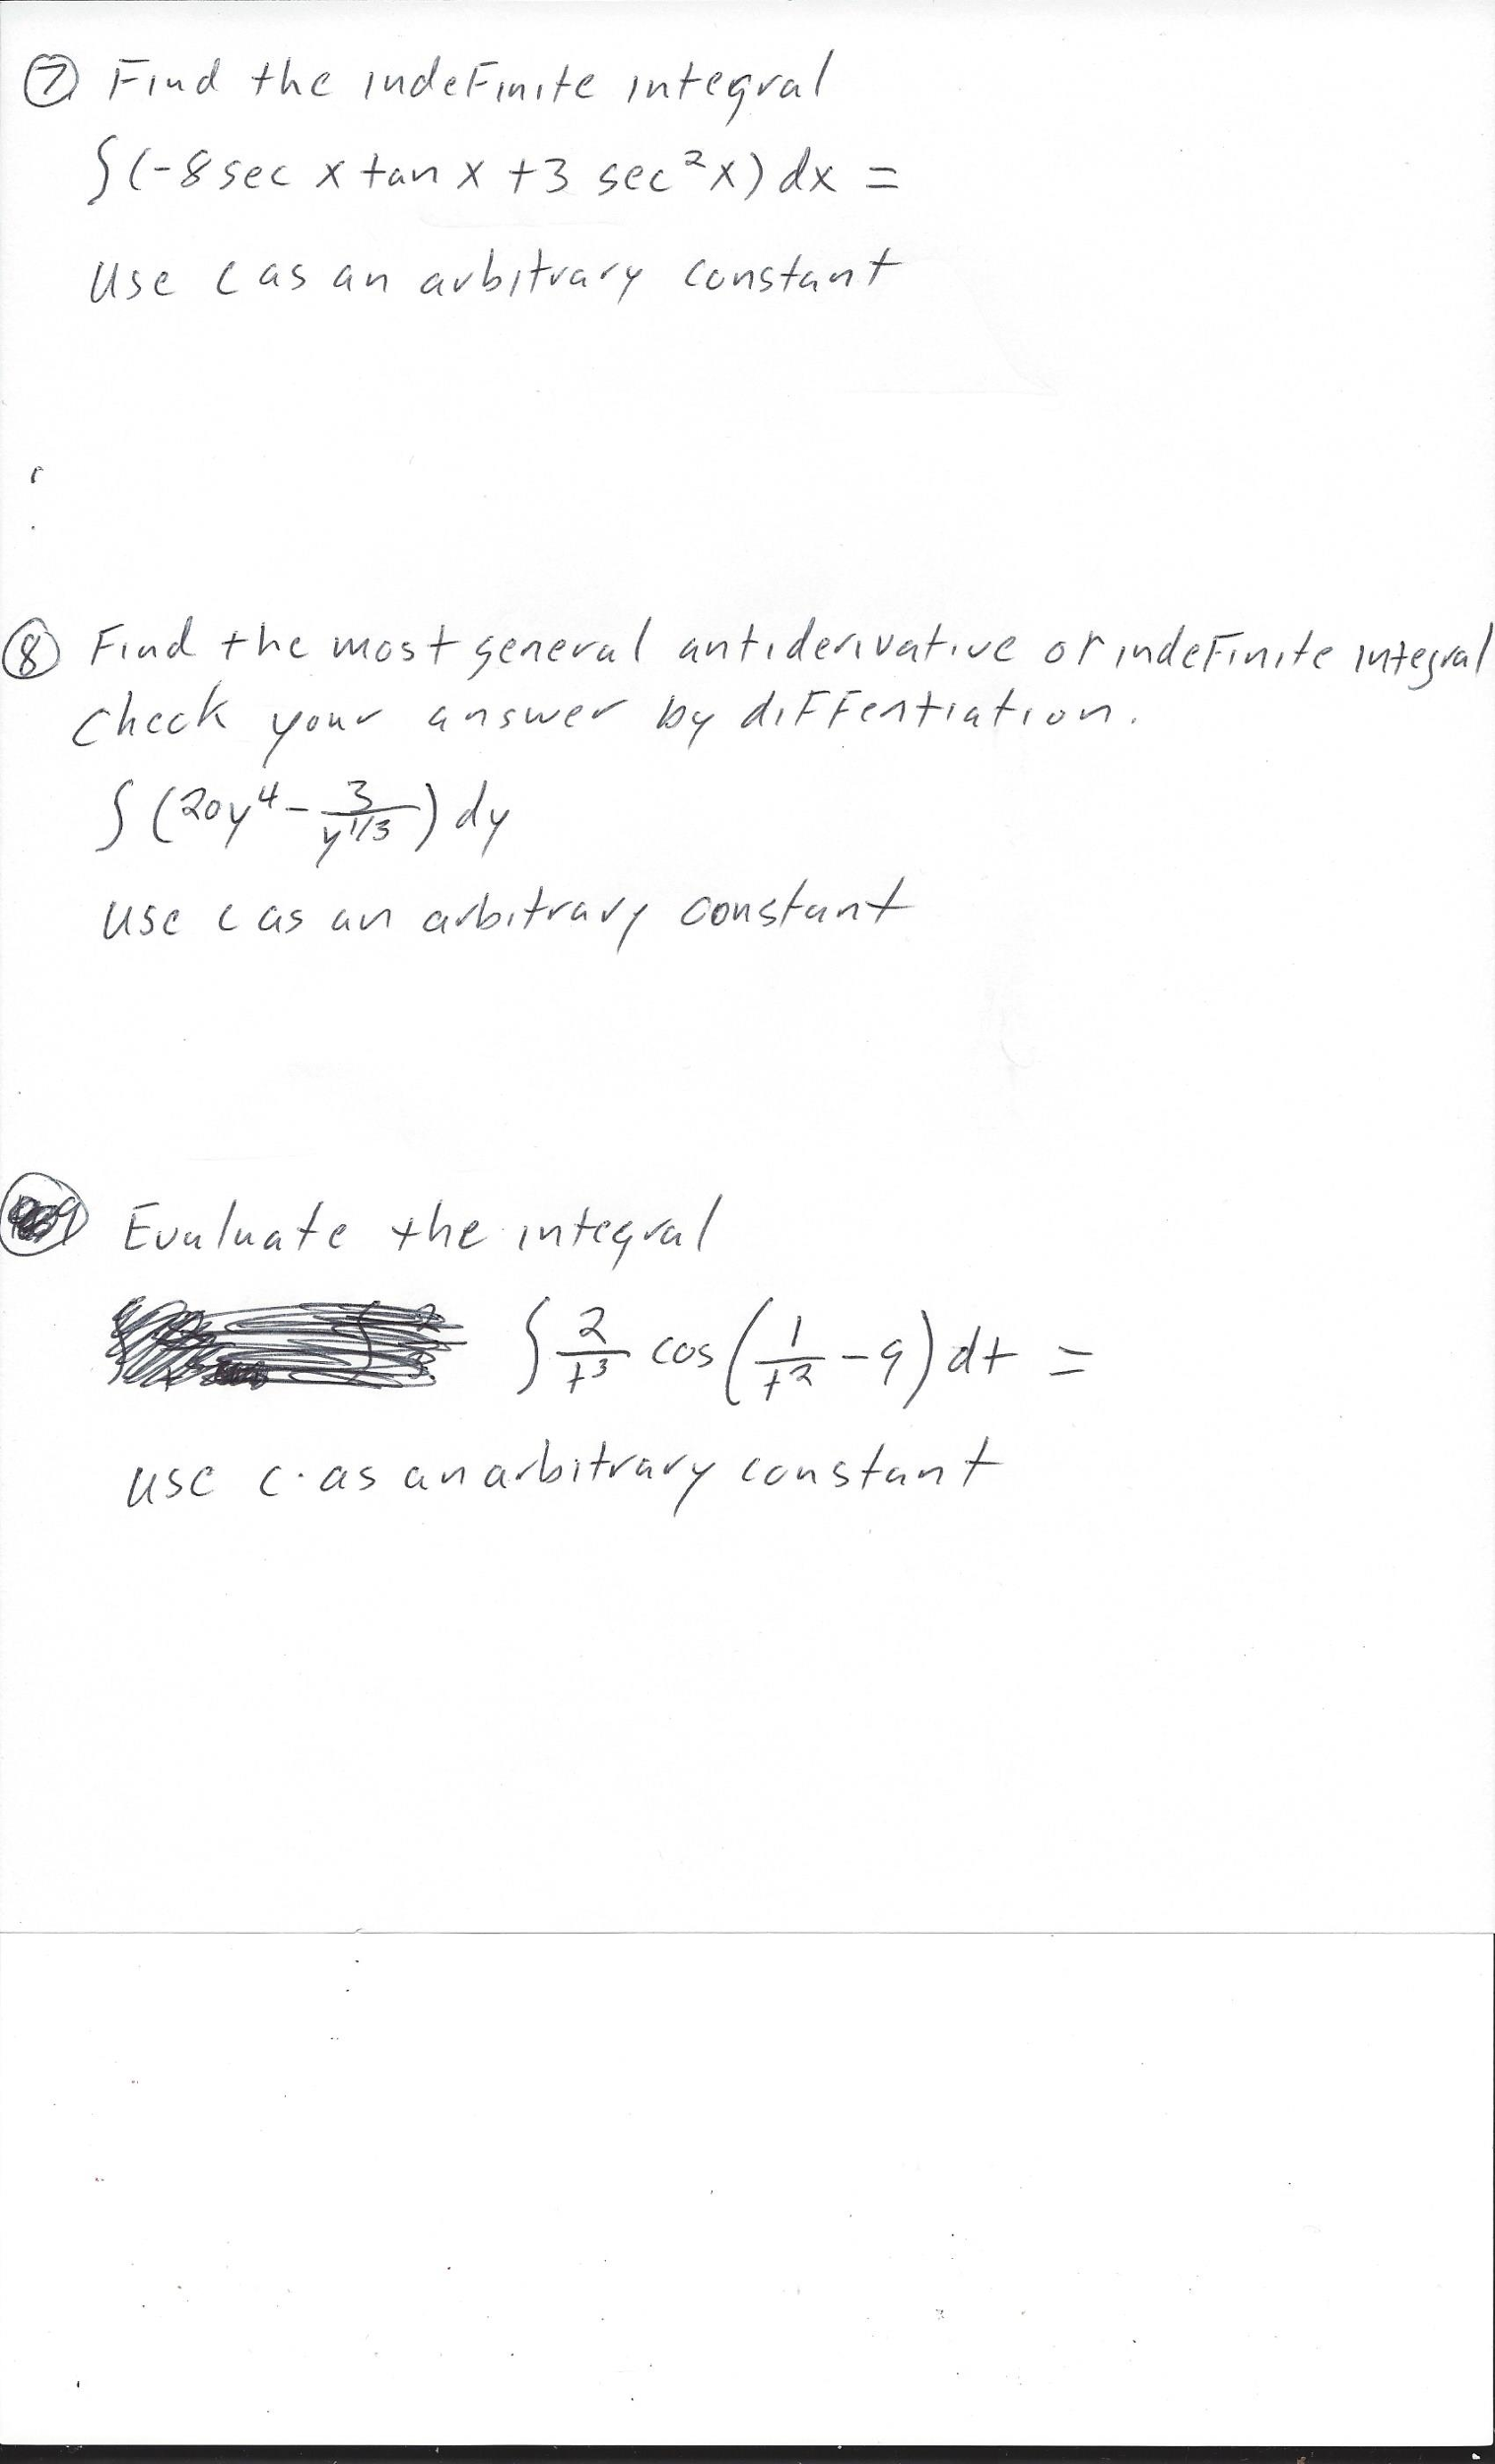 ⑦ Find the indefinite integral
∫(-8 sec x tan x + 3 sec²x) dx =
Use C as an arbitrary constant
⑧ Find the most general antiderivative or indefinite integral
Check your answer by diffentiation.
∫ (20y⁴ - 3/y^(1/3)) dy
Use C as an arbitrary constant
9 Evaluate the integral
∫ 2/t³ cos(1/t² - 9) dt =
use C as an arbitrary constant